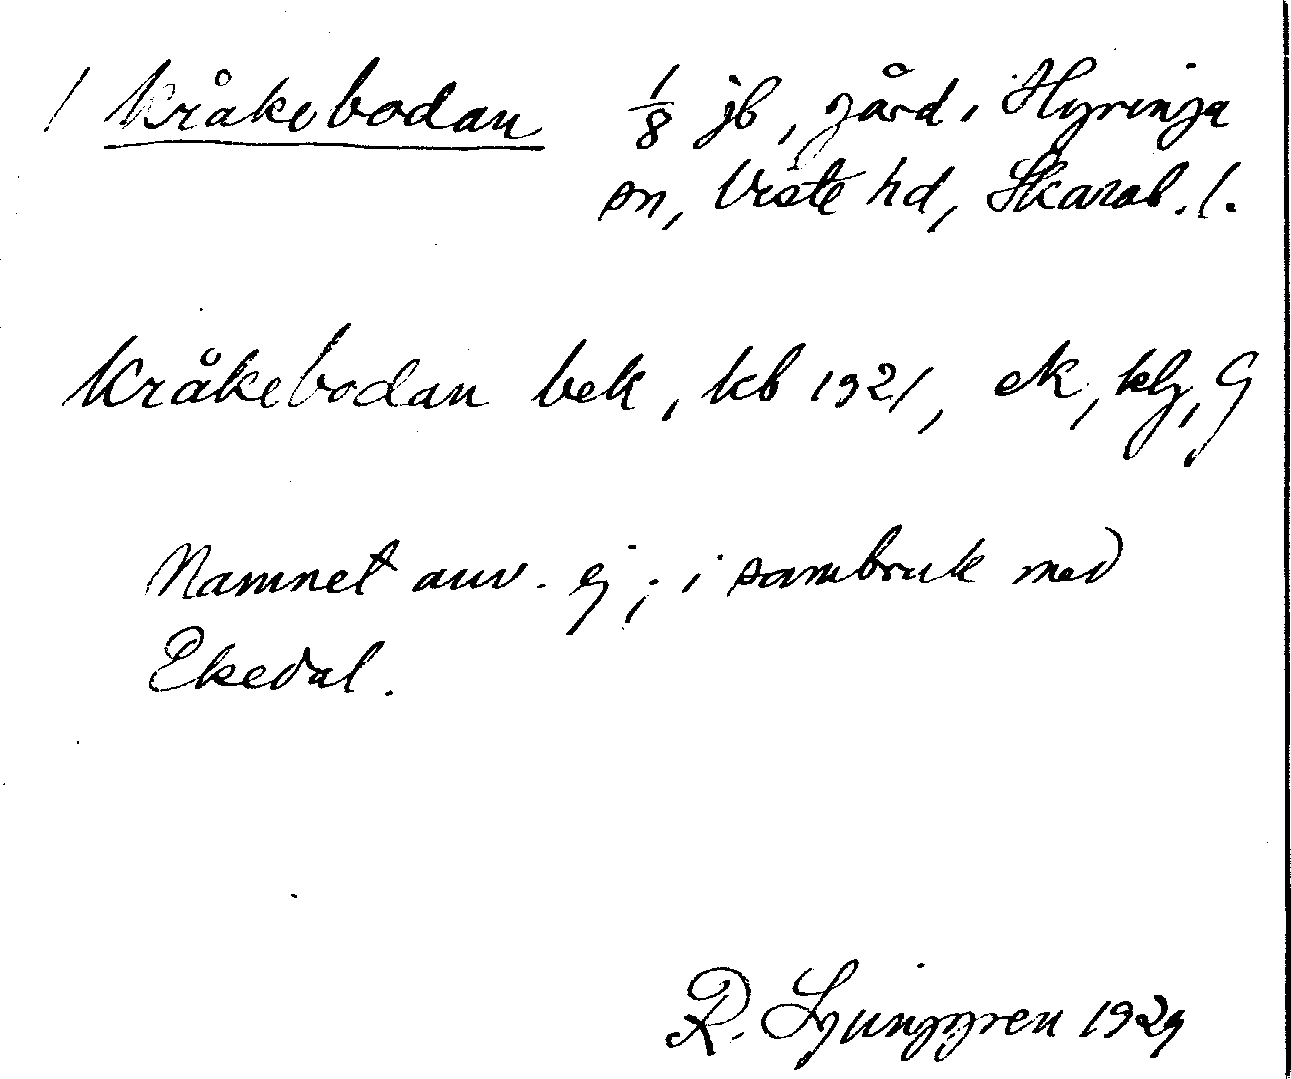 / Kråkebodan 1/8 jb, gård i Hyringa
sn, Viste hd, Skarab. l.
Kråkebodan bek, kb 1921, ek, klg, G
Namnet anv. ej; i sambruk med
Ekedal.
R. Ljunggren 1929